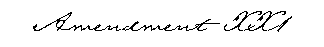 Amendment XXI